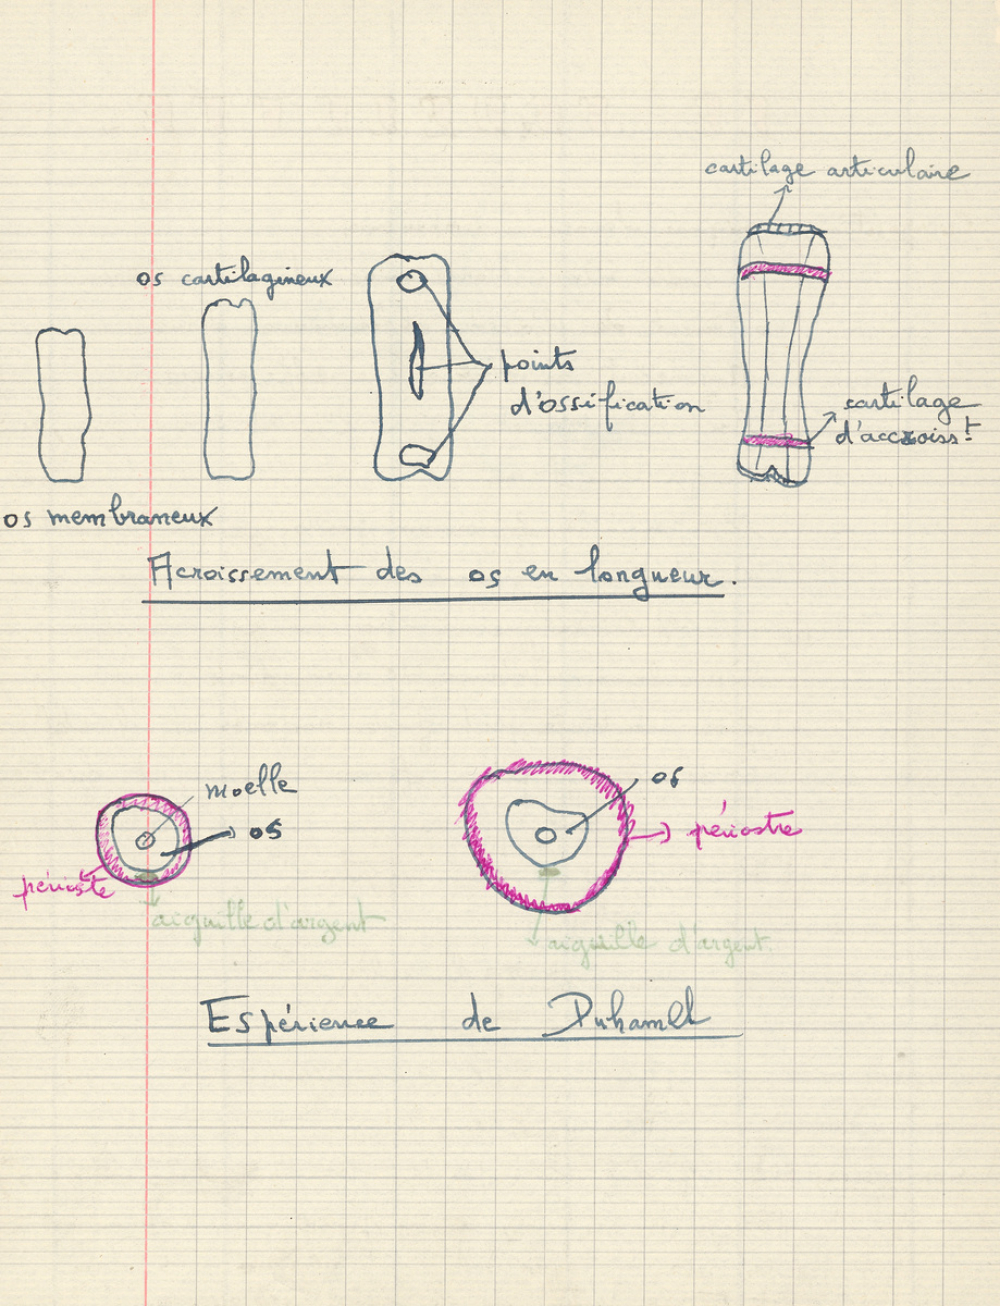 cartilage articulaire
os cartilagineux
points
d'ossification
cartilage
d'accroisst
os membraneux
Acroissement des os en longueur.
moelle
os
os
périoste
périostre
aiguille d'argent
aiguille d'argent.
Espérience de Duhamel